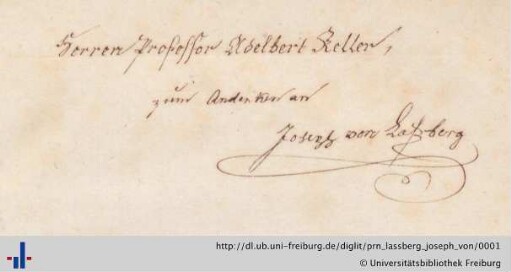 Herren Professor Adelbert Keller,
zum Andenken an
Joseph von Laßberg
http://dl.ub.uni-freiburg.de/diglit/prn_lassberg_joseph_von/0001
© Universitätsbibliothek Freiburg